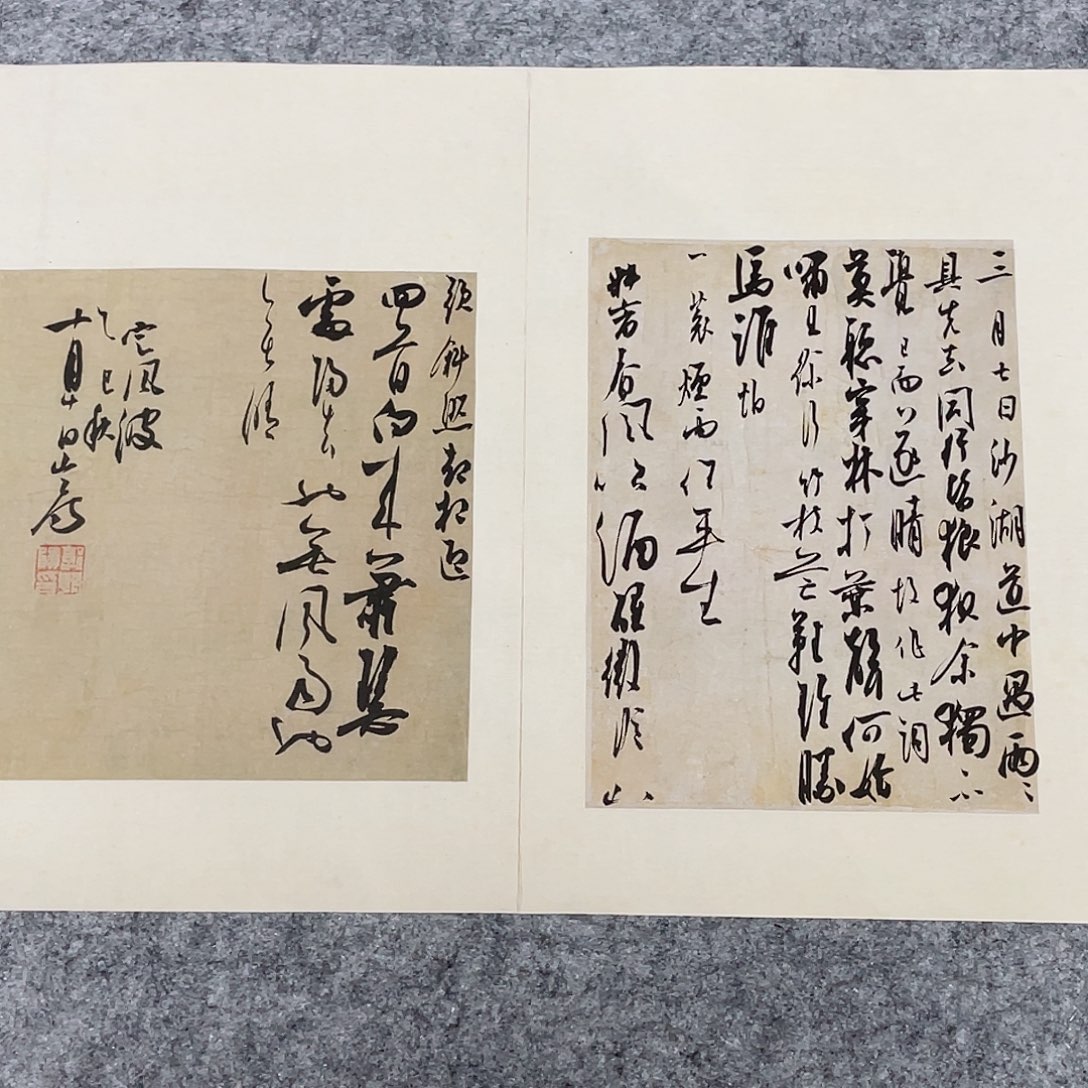 三月七日沙湖道中遇雨〻
具先去同行皆狼狽余獨不
覺已而遂晴故作此詞
莫聽穿林打葉聲何妨
嘯且徐行竹杖芒鞋輕勝
馬誰怕
一蓑煙雨任平生
料峭春風吹酒醒微冷山
頭斜照却相迎
回首向來蕭瑟
處歸去也無風雨也
無晴
定風波
乙巳秋
十月十日山